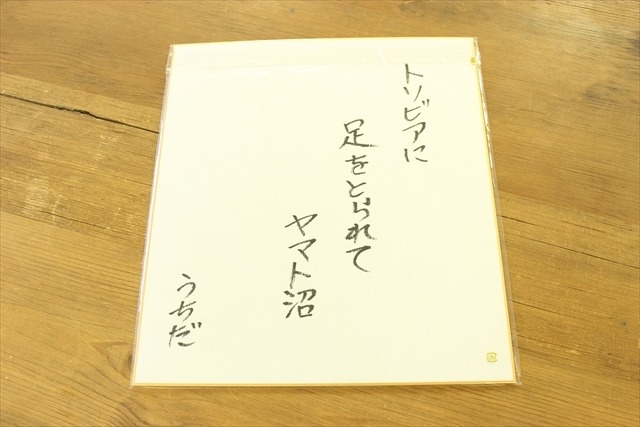 トリビアに
足をとられて
ヤマト沼
うちだ